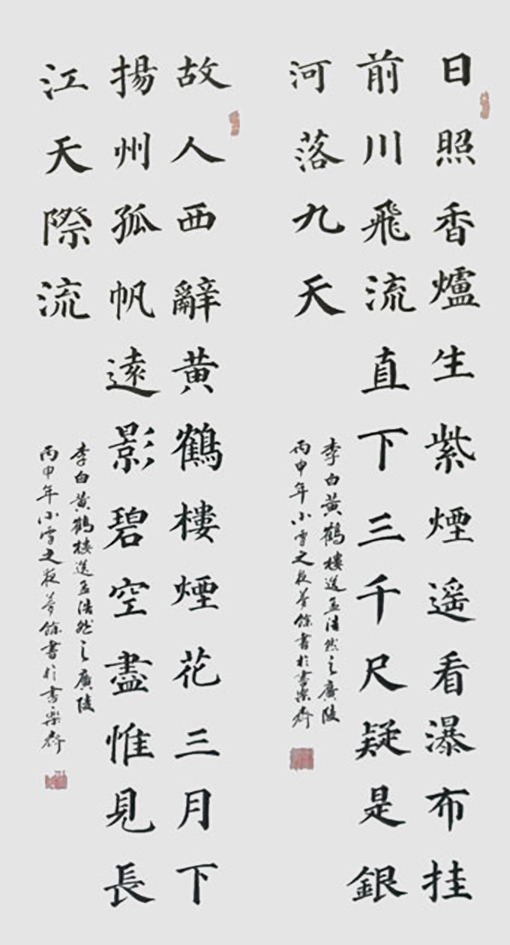 日照香爐生紫煙遙看瀑布挂
前川飛流直下三千尺疑是銀
河落九天
李白黄鶴樓送孟浩然之廣陵
丙申年小雪之夜餘書於書樂齋
故人西辭黄鶴樓煙花三月下
揚州孤帆遠影碧空盡惟見長
江天際流
李白黄鶴樓送孟浩然之廣陵
丙申年小雪之夜餘書於書樂齋